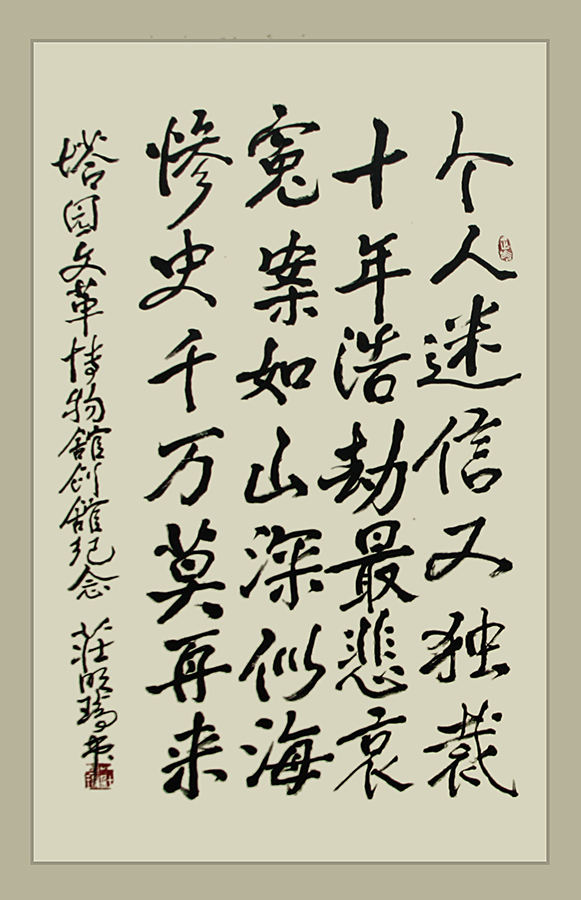 个人迷信又独裁
十年浩劫最悲哀
寃案如山深似海
惨史千万莫再来
塔园文革博物舘创舘纪念 莊明瑞书